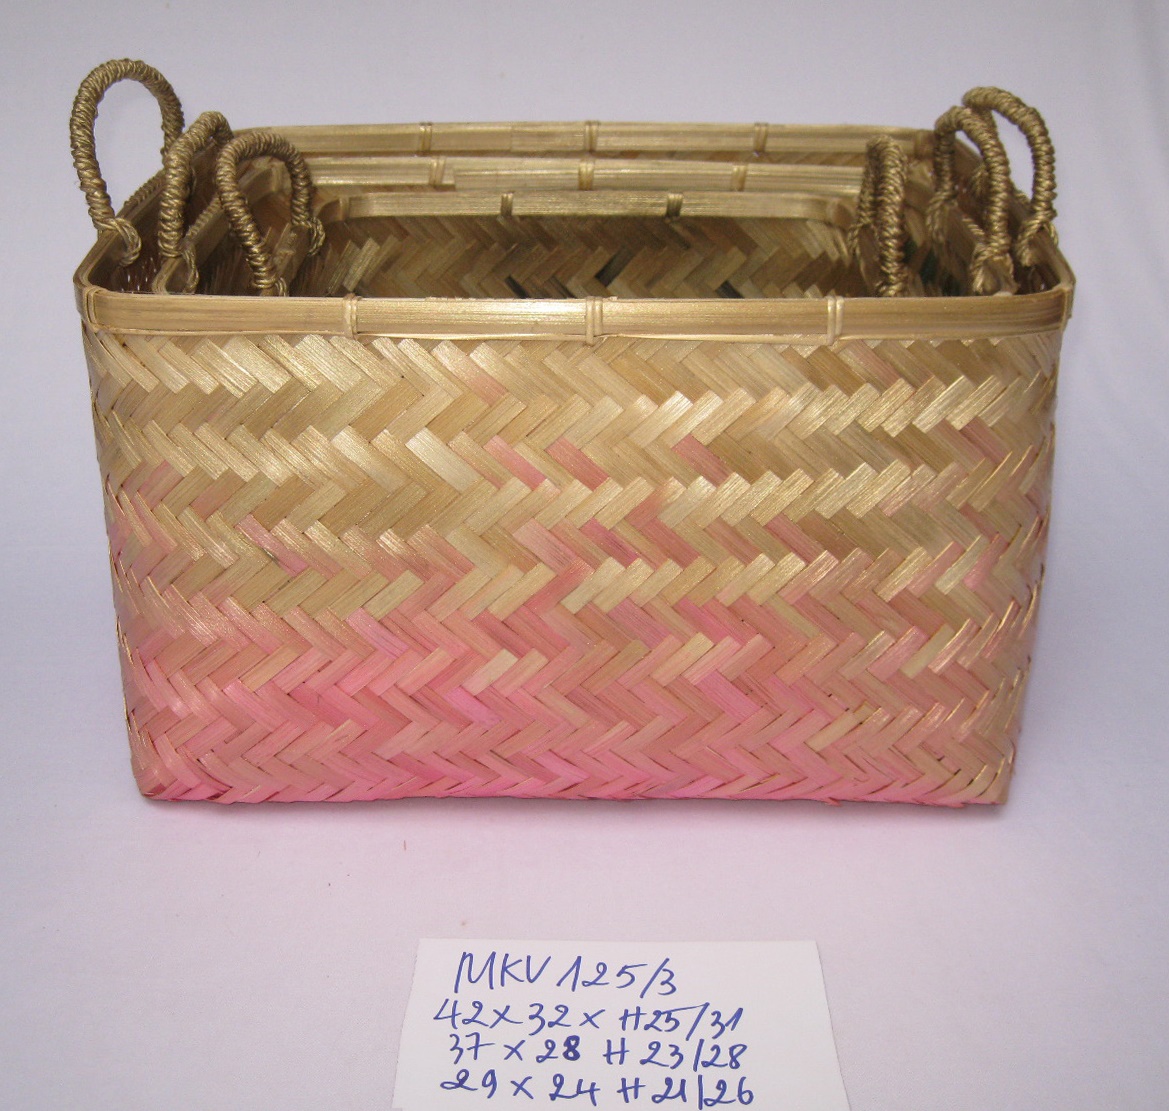 MKV 125/3
42 x 32 x H25/31
37 x 28 H 23/28
29 x 24 H 21/26